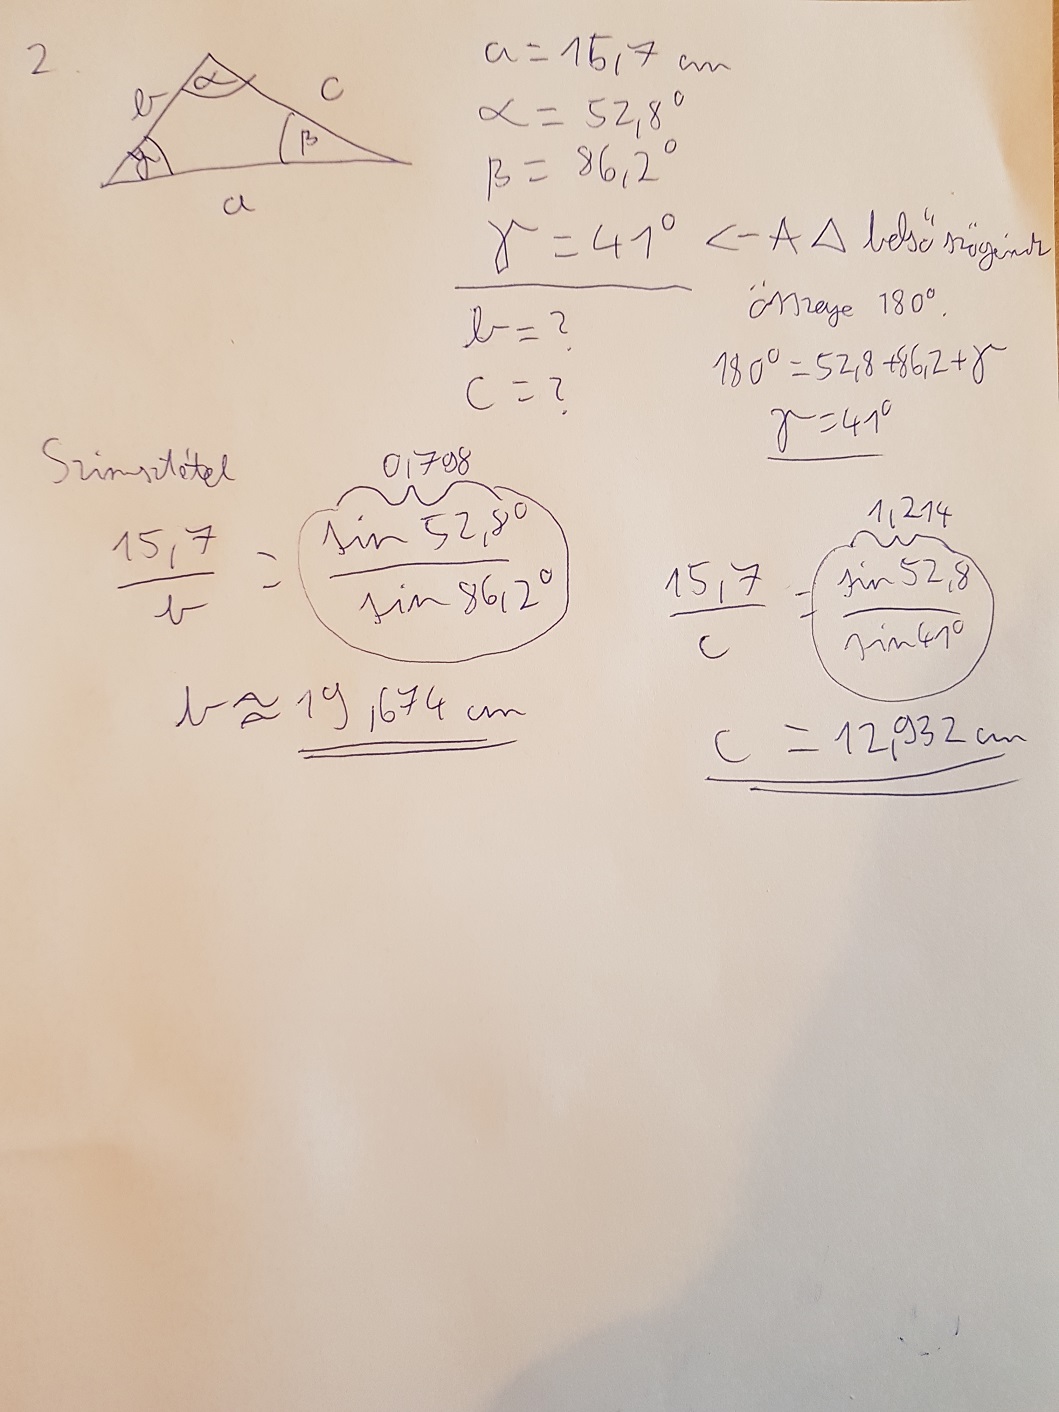 2.
α
b
c
γ
β
a
a = 15,7 cm
α = 52,8°
β = 86,2°
γ = 41° <- A △ belső szögeinek
összege 180°.
b = ?
180° = 52,8 + 86,2 + γ
c = ?
γ = 41°
Szinusztétel
0,798
15,7 / b = sin 52,8° / sin 86,2°
b ≈ 19,674 cm
1,214
15,7 / c = sin 52,8 / sin 41°
c = 12,932 cm